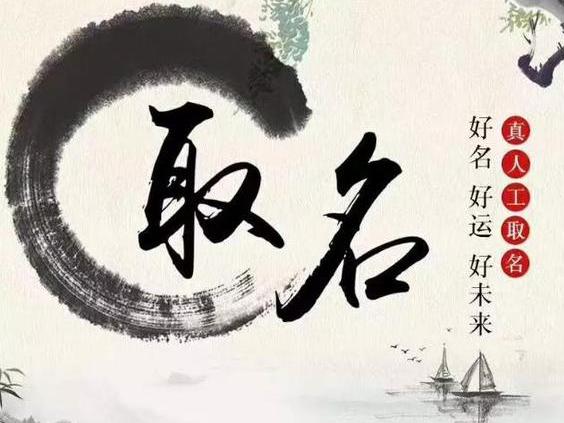 取名
真人工取名
好名 好运 好未来